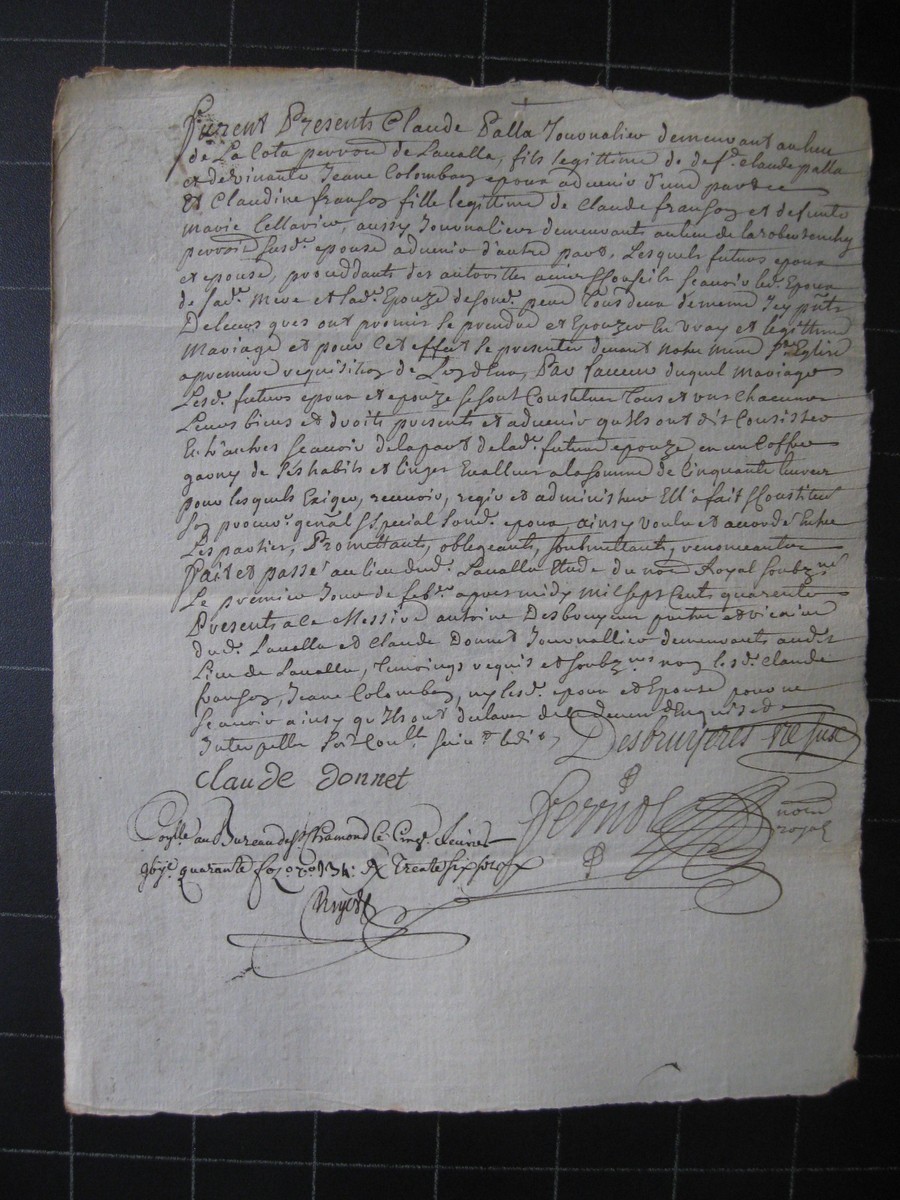 furent Presents Claude Palla Journalier demeurant au lieu
de La Cota perroise de Laualla, fils legittime de def.t Claude palla
et de vivante Jeane Colombes epoux aduenir d'une part &
Et Claudine fransoz fille legittime de Claude fransoz et defunte
marie Cellarier, aussy Journaliers demeurants au lieu de
perroise susd.e epouse aduenir d'autre part, Lesquels futurs epoux
et epouse, proceddants des autorittes scauoir led. Epoux
de sad.e Mere et lad.e Epouze de sond. pere tous deux de meme Icy p.nts
De leurs grés ont promis se prendre et Epouzer En vray et legittime
Mariage et pour Cet effect se presenter deuant notre mere s.te Eglise
a premiere requisition de L'un d'eux, Par faueur duquel Mariage
Lesd. futurs epoux et epouze se sont Constitués tous et uns chacuns
Leurs biens et droits presents et aduenir qu'ils ont dit Consister
Entr'autres scauoir de la part de lad.e future epouze, en un Coffre
garny de ses habits et linges Euallués a la somme de Cinquante liures
pour lesquels Exiger, receuoir, regir et administrer Ell'a fait & Constitué
Son procur. genal & special sond. epoux, ainsy voulu et accordé Entre
Les parties, Promettants, obligeants, soubmettants, renonceants &
fait et passé au lieu dud. Laualla Etude du no.re Royal soubz.né
Le premier Jour de feb. apres midy mil sept Cents quarente
Presents a Ce Messire antoine Desbruyeres pretre et vicaire
dud. Laualla et Claude Donnet Journallier demeurants aud.
Lieu de Laualla, temoings requis et soubz.nés non lesd. Claude
fransoz, Jeane Colombes, ny lesd. epoux et Epouse pour ne
scauoir ainsy qu'ils ont declaré de ce deument Enquis et
Interpellés Soit Conllé
Desbruyeres vic
Claude donnet
fernol
nore
royal
Conllé au Bureau de St Chamond le Cinq feurier
quarante fo. 34. R trente six sols